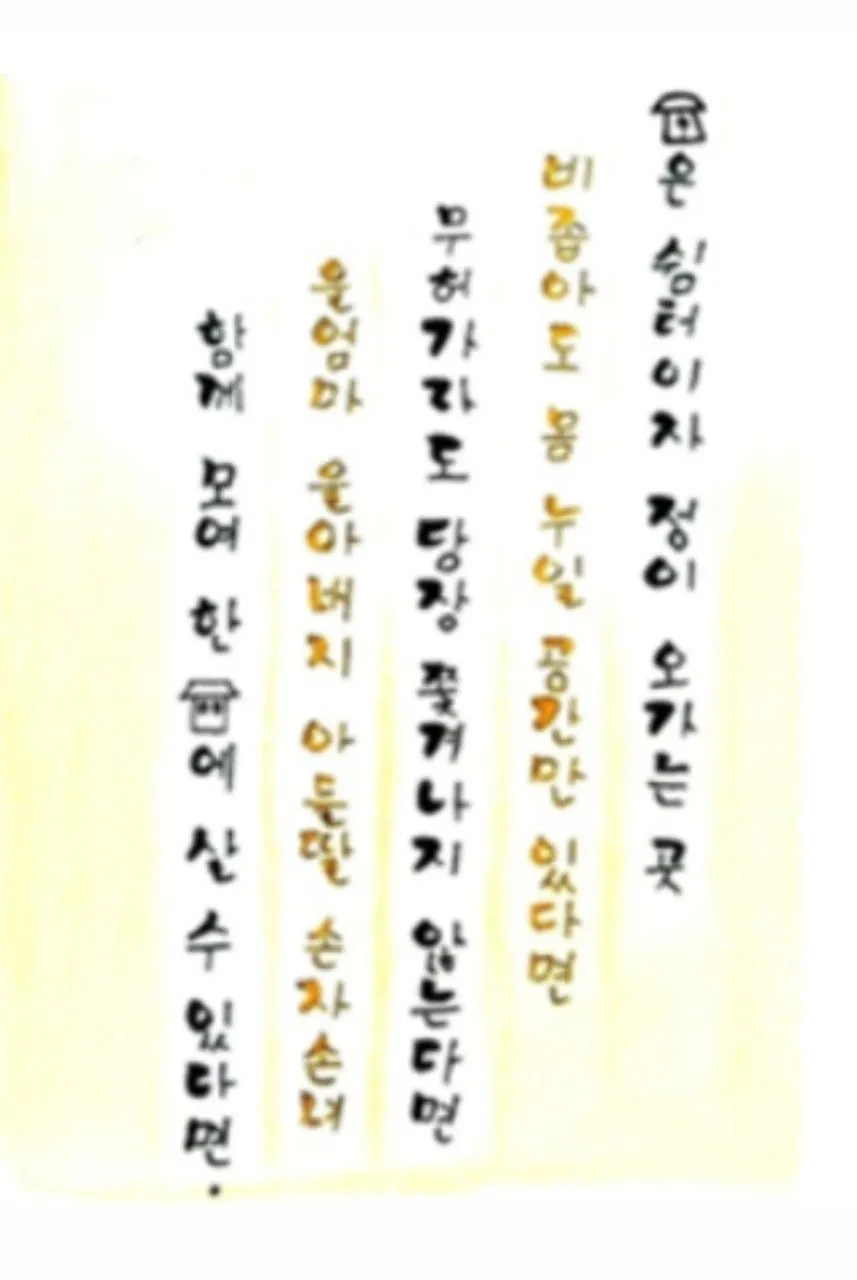 은 쉼터이자 정이 오가는 곳
비좁아도 몸 누일 공간만 있다면
무허가라도 당장 쫓겨나지 않는다면
울엄마 울아버지 아들딸 손자손녀
함께 모여 한 에 살 수 있다면.